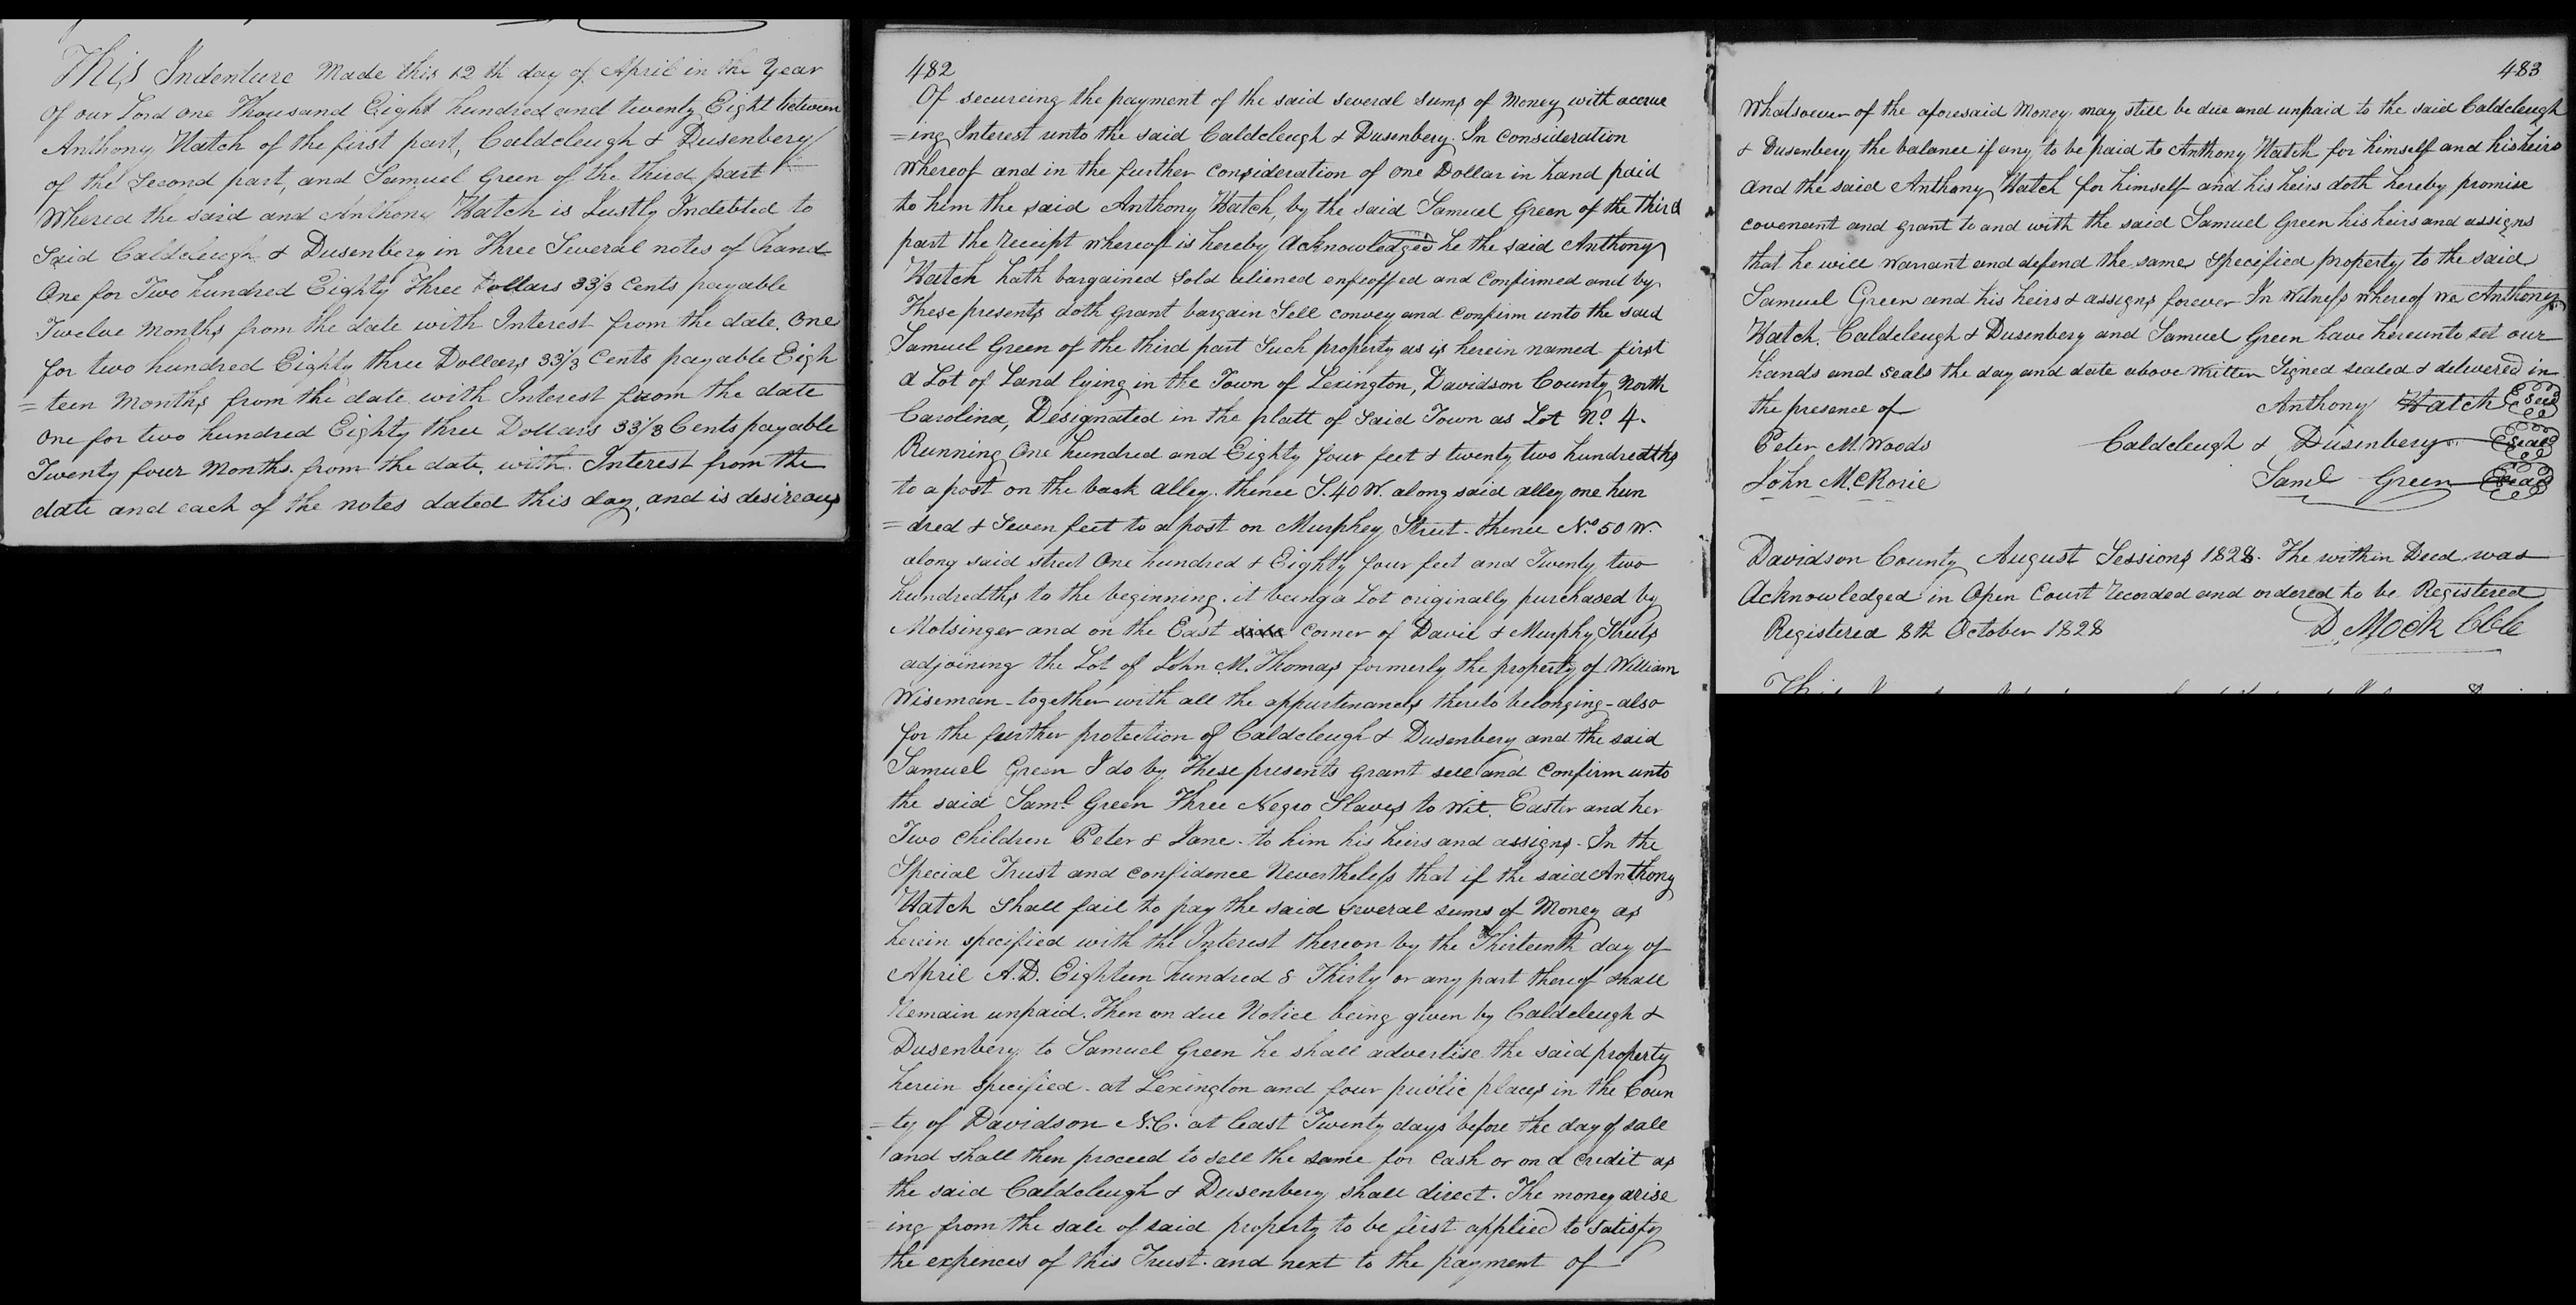 This Indenture Made this 12th day of April in the Year
of our Lord One Thousand Eight hundred and twenty Eight between
Anthony Hatch of the first part, Caldcleugh & Dusenbery
of the Second part, and Samuel Green of the third part
Whered the said and Anthony Hatch is Justly Indebted to
Said Caldcleugh & Dusenbery in Three Several notes of hand
One for Two hundred Eighty Three Dollars 33⅓ Cents payable
Twelve Months from the date with Interest from the date. One
for two hundred Eighty three Dollars 33⅓ Cents payable Eigh
=teen Months from the date with Interest from the date
One for two hundred Eighty three Dollars 33⅓ Cents payable
Twenty four Months from the date, with Interest from the
date and each of the notes dated this day, and is desireous
482
Of secureing the payment of the said several sums of Money with accrue
=ing Interest unto the said Caldcleugh & Dusenbery. In Consideration
Whereof and in the further consideration of one Dollar in hand paid
to him the said Anthony Hatch, by the said Samuel Green of the third
part the receipt whereof is hereby Acknowledged he the said Anthony
Hatch hath bargained Sold aliened enfeoffed and Confirmed and by
These presents doth grant bargain Sell convey and confirm unto the said
Samuel Green of the third part Such property as is herein named first
a Lot of Land lying in the Town of Lexington, Davidson County North
Carolina, Designated in the platt of Said Town as Lot No. 4.
Running One hundred and Eighty four feet & twenty two hundredths
to a post on the back alley. thence S. 40 W. along said alley one hun
=dred & Seven feet to a post on Murphey Street. thence No. 50 W.
along said street One hundred & Eighty four feet and Twenty two
hundredths to the beginning. it being a Lot originally purchased by
Motsinger and on the East side Corner of Davie & Murphy Streets
adjoining the Lot of John M. Thomas formerly the property of William
Wiseman - together with all the appurtenances thereto belonging - also
for the further protection of Caldcleugh & Dusenbery and the said
Samuel Green I do by These presents grant sell and Confirm unto
the said Saml. Green Three Negro Slaves to Wit. Easter and her
Two Children Peter & Jane. to him his heirs and assigns. In the
Special Trust and confidence Nevertheless that if the said Anthony
Hatch Shall fail to pay the said several sums of Money as
herein specified with the Interest thereon by the Thirteenth day of
April A.D. Eighteen hundred & Thirty or any part thereof shall
Remain unpaid. Then on due Notice being given by Caldcleugh &
Dusenbery to Samuel Green he shall advertise the said property
herein specified. at Lexington and four public places in the Coun
=ty of Davidson N.C. at least Twenty days before the day of sale
and shall then proceed to sell the same for Cash or on a credit as
the said Caldcleugh & Dusenbery shall direct. The money arise
ing from the sale of said property to be first applied to satisfy
the expences of this Trust. and next to the payment of
483
Whatsoever of the aforesaid Money may still be due and unpaid to the said Caldcleugh
& Dusenbery the balance if any to be paid to Anthony Hatch for himself and his heirs
and the said Anthony Hatch for himself and his heirs doth hereby promise
covenant and grant to and with the said Samuel Green his heirs and assigns
that he will warrant and defend the same specified property to the said
Samuel Green and his heirs & assigns forever In Witness whereof we Anthony
Hatch. Caldcleugh & Dusenbery and Samuel Green have hereunto set our
hands and seals the day and date above Written Signed sealed & delivered in
the presence of Anthony Hatch Seal
Peter M. Woods Caldcleugh & Dusenbery Seal
John McRorie Saml Green Seal
Davidson County August Sessions 1828. The within Deed was
Acknowledged in Open Court recorded and ordered to be Registered
Registered 8th October 1828 D. Mock Clk